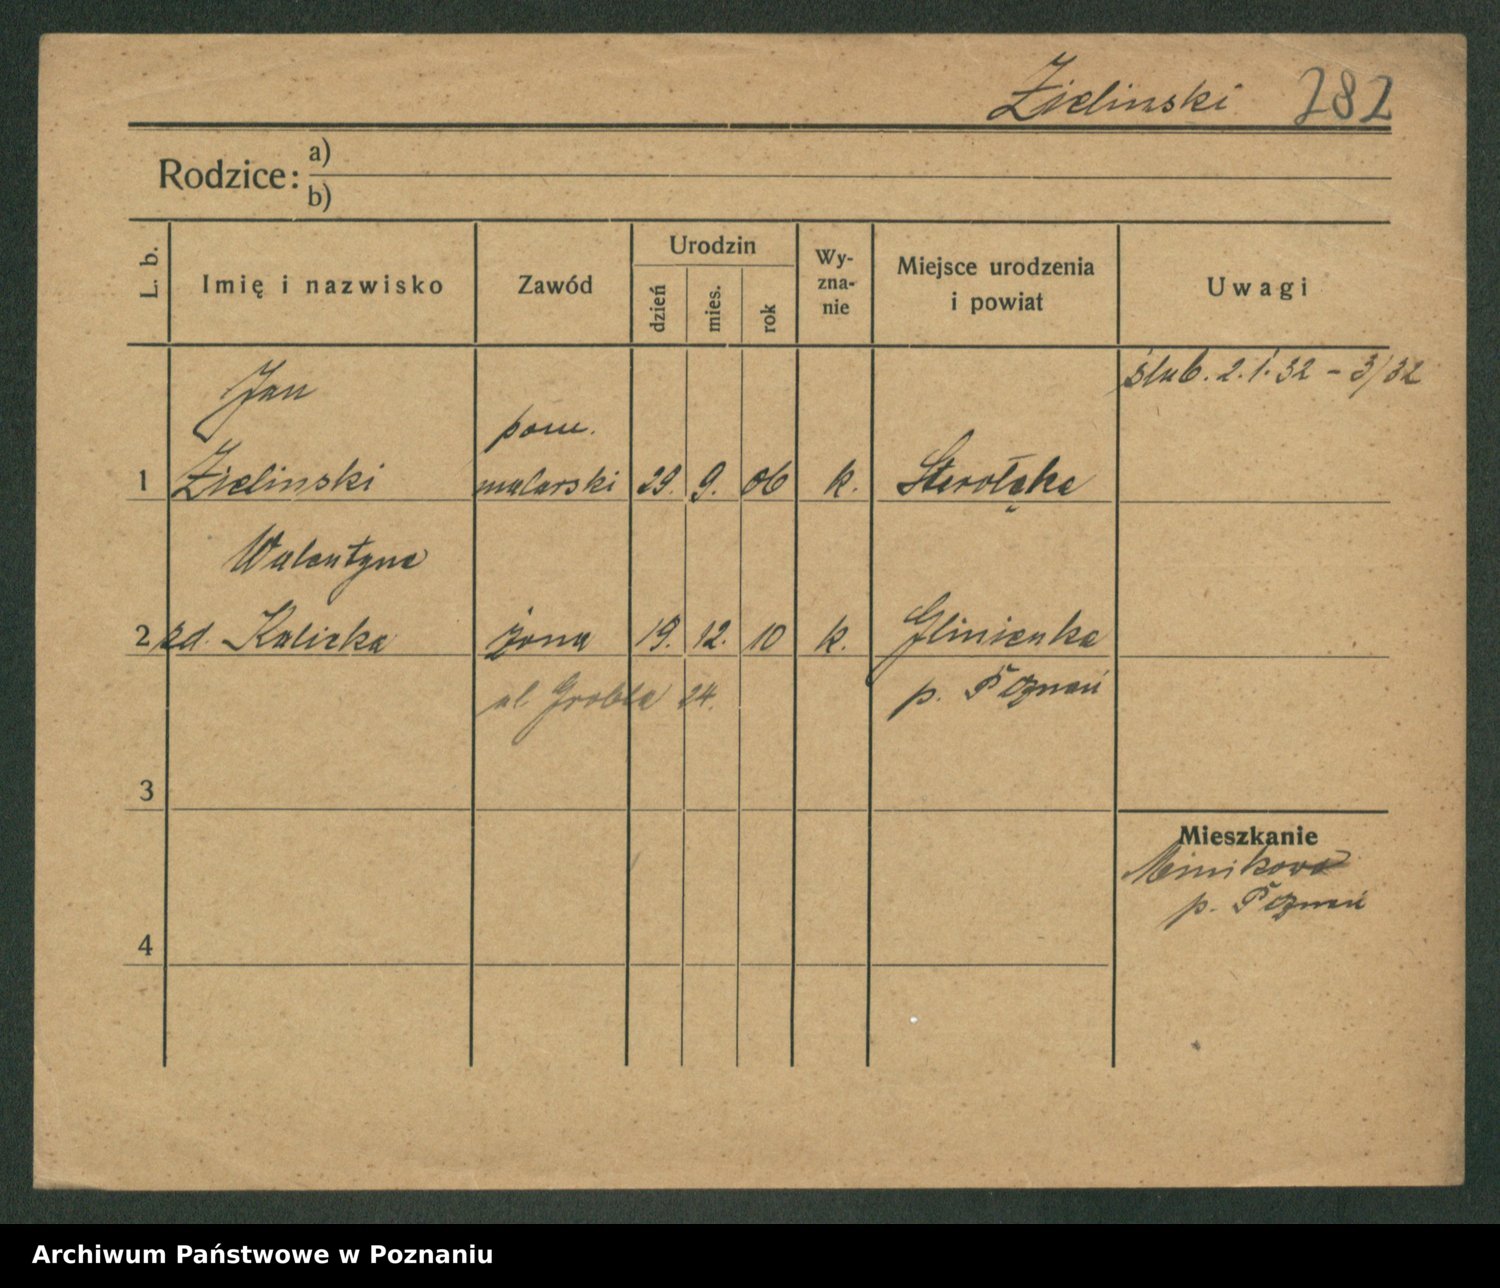 Zielinski 282
Rodzice:
a)
b)
L. b.
Imię i nazwisko
Zawód
Urodzin
dzień
mies.
rok
Wy-
zna-
nie
Miejsce urodzenia
i powiat
Uwagi
ślub. 2.1.32 - 3/32
Jan
pom.
1 Zielinski malarski 29. 9. 06 k. Starołęka
Walentyna
2 zd. Kalicka żona 19. 12. 10 k. Glinienka
ul Grobla 24. p. Poznań
3
Mieszkanie
Minikowo
p. Poznań
4
Archiwum Państwowe w Poznaniu